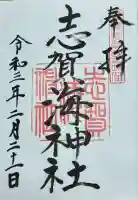 奉拝
志賀海神社
令和三年二月二十一日